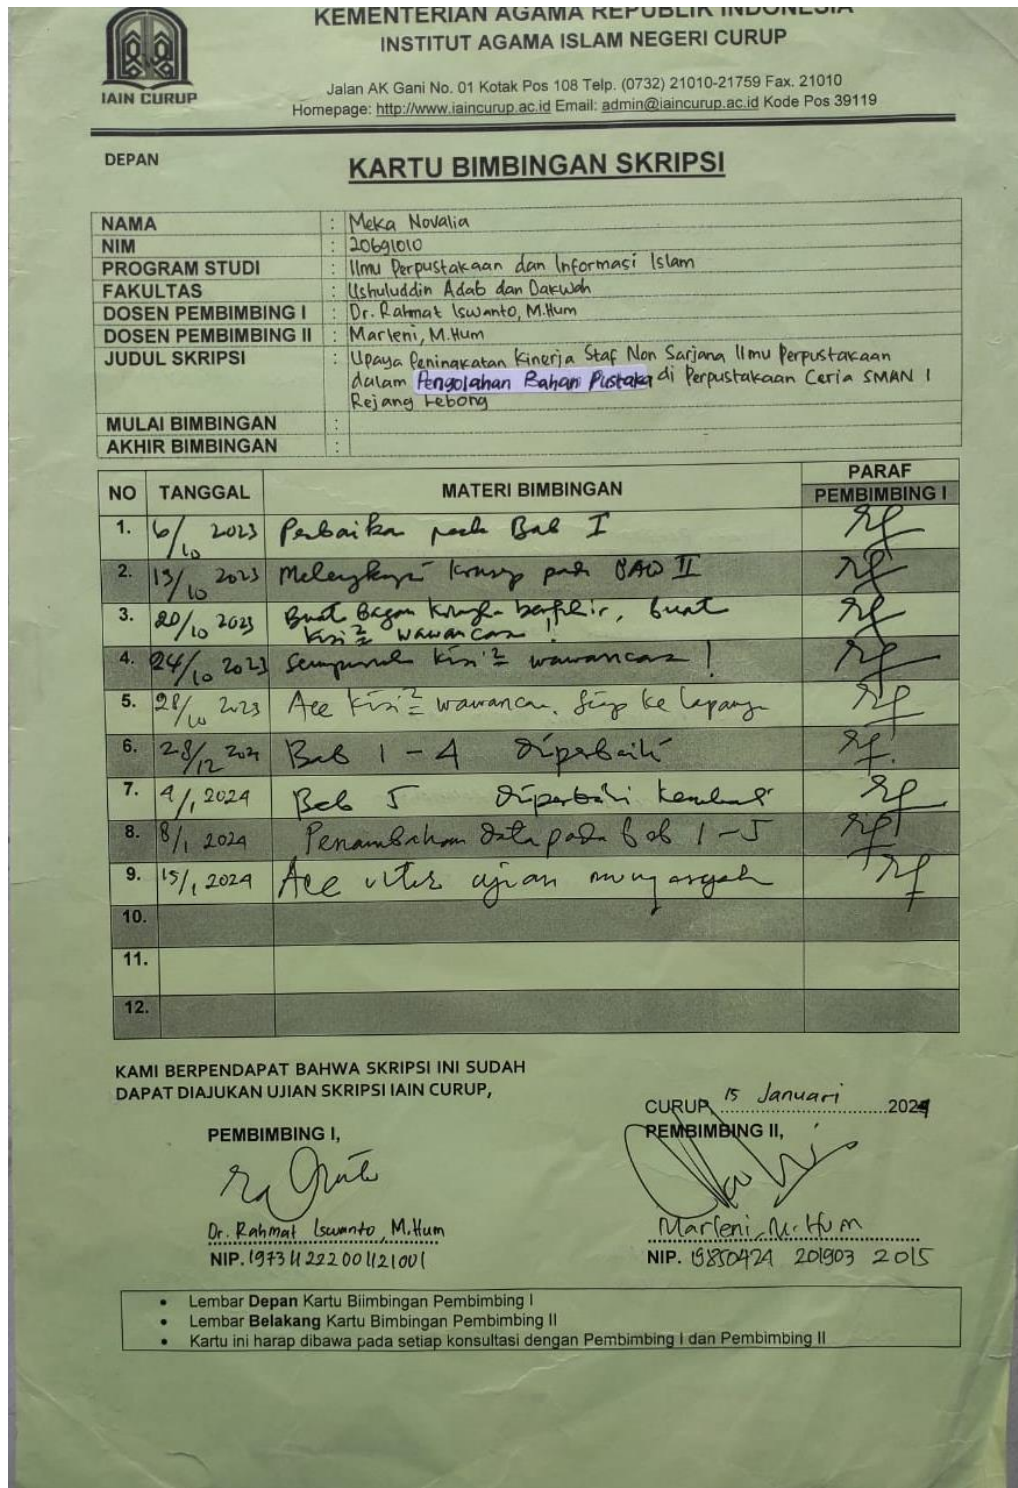 KEMENTERIAN AGAMA REPUBLIK INDONESIA
INSTITUT AGAMA ISLAM NEGERI CURUP
IAIN CURUP
Jalan AK Gani No. 01 Kotak Pos 108 Telp. (0732) 21010-21759 Fax. 21010
Homepage: http://www.iaincurup.ac.id Email: admin@iaincurup.ac.id Kode Pos 39119
DEPAN
KARTU BIMBINGAN SKRIPSI
NAMA : Meka Novalia
NIM : 20691010
PROGRAM STUDI : Ilmu Perpustakaan dan Informasi Islam
FAKULTAS : Ushuluddin Adab dan Dakwah
DOSEN PEMBIMBING I : Dr. Rahmat Iswanto, M.Hum
DOSEN PEMBIMBING II : Marleni, M.Hum
JUDUL SKRIPSI : Upaya Peningkatan Kinerja Staf Non Sarjana Ilmu Perpustakaan
dalam Pengolahan Bahan Pustaka di Perpustakaan Ceria SMAN 1
Rejang Lebong
MULAI BIMBINGAN :
AKHIR BIMBINGAN :
NO TANGGAL MATERI BIMBINGAN PARAF
PEMBIMBING I
1. 6/10 2023 Perbaikan pada Bab I
2. 13/10 2023 Melengkapi konsep pada BAB II
3. 20/10 2023 Buat Bagan kerangka berfikir, buat
kisi2 wawancara!
4. 24/10 2023 Sempurnak kisi2 wawancara!
5. 28/10 2023 Acc kisi2 wawancara. Siap ke lapangan
6. 28/12 Bab 1 - 4 diperbaiki
7. 4/1 2024 Bab 5 diperbaiki kembali
8. 8/1 2024 Penambahan data pada bab 1-5
9. 15/1 2024 Acc untuk ujian munaqasyah
10.
11.
12.
KAMI BERPENDAPAT BAHWA SKRIPSI INI SUDAH
DAPAT DIAJUKAN UJIAN SKRIPSI IAIN CURUP,
CURUP, 15 Januari 2024
PEMBIMBING I,
PEMBIMBING II,
Dr. Rahmat Iswanto, M.Hum
Marleni, M.Hum
NIP. 197311222001121001
NIP. 19850424 201903 2015
• Lembar Depan Kartu Biimbingan Pembimbing I
• Lembar Belakang Kartu Bimbingan Pembimbing II
• Kartu ini harap dibawa pada setiap konsultasi dengan Pembimbing I dan Pembimbing II